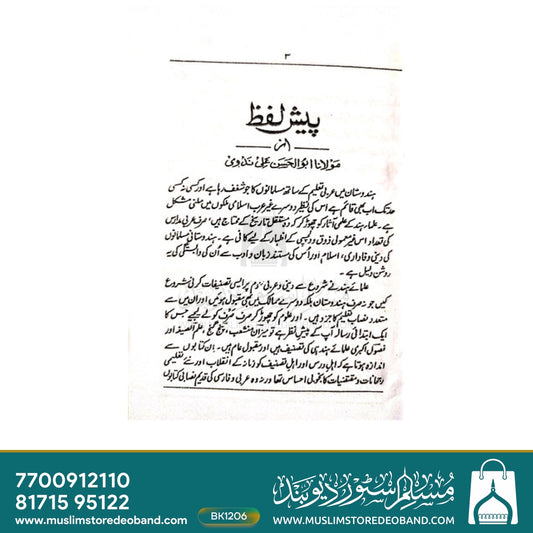 ۳
پیش لفظ
از
مولانا ابوالحسن علی ندوی
ہندوستان میں عربی تعلیم کے ساتھ مسلمانوں کا جو شغف رہا ہے اور کسی نہ کسی
حد تک اب بھی قائم ہے اس کی نظیر دوسرے غیر عرب اسلامی ملکوں میں ملنی مشکل
ہے۔ علماء ہند کے علمی آثار کو چھوڑ کر کہ وہ مستقل تاریخ کے محتاج ہیں صرف عربی مدارس
کی تعداد اس غیر معمولی ذوق و دلچسپی کے اظہار کے لیے کافی ہے۔ ہندوستانی مسلمانوں
کی دینی وفاداری، اسلام اور اس کی مستند زبان و ادب سے اُن کی وابستگی کی یہ
روشن دلیل ہے۔
علمائے ہند نے شروع سے دینی و عربی علوم پر ایسی تصنیفات کرنی شروع
کیں جو نہ صرف ہندوستان بلکہ دوسرے ممالک میں بھی مقبول ہوئیں اور ان میں سے
متعدد نصاب تعلیم کا جزو ہیں۔ اور علوم کو چھوڑ کر صرف صَرف کو لے لیجیے جس کا
ایک ابتدائی رسالہ آپ کے پیش نظر ہے تو میزان منشعب، پنج گنج، علم الصیغہ اور
فصول اکبری علمائے ہند ہی کی تصنیف ہیں اور مقبول عام ہیں۔ ان کتابوں سے
اندازہ ہوتا ہے کہ اہل درس اور اہل تصنیف کو زمانہ کے انقلاب اور نئے تعلیمی
رجحانات و مقتضیات کا بخوبی احساس تھا ورنہ وہ عربی و فارسی کی قدیم نصابی کتابوں
7700912110
81715 95122
www.muslimstoredeoband.com
BK1206
مسلم اسٹور دیوبند
WWW.MUSLIMSTOREDEOBAND.COM